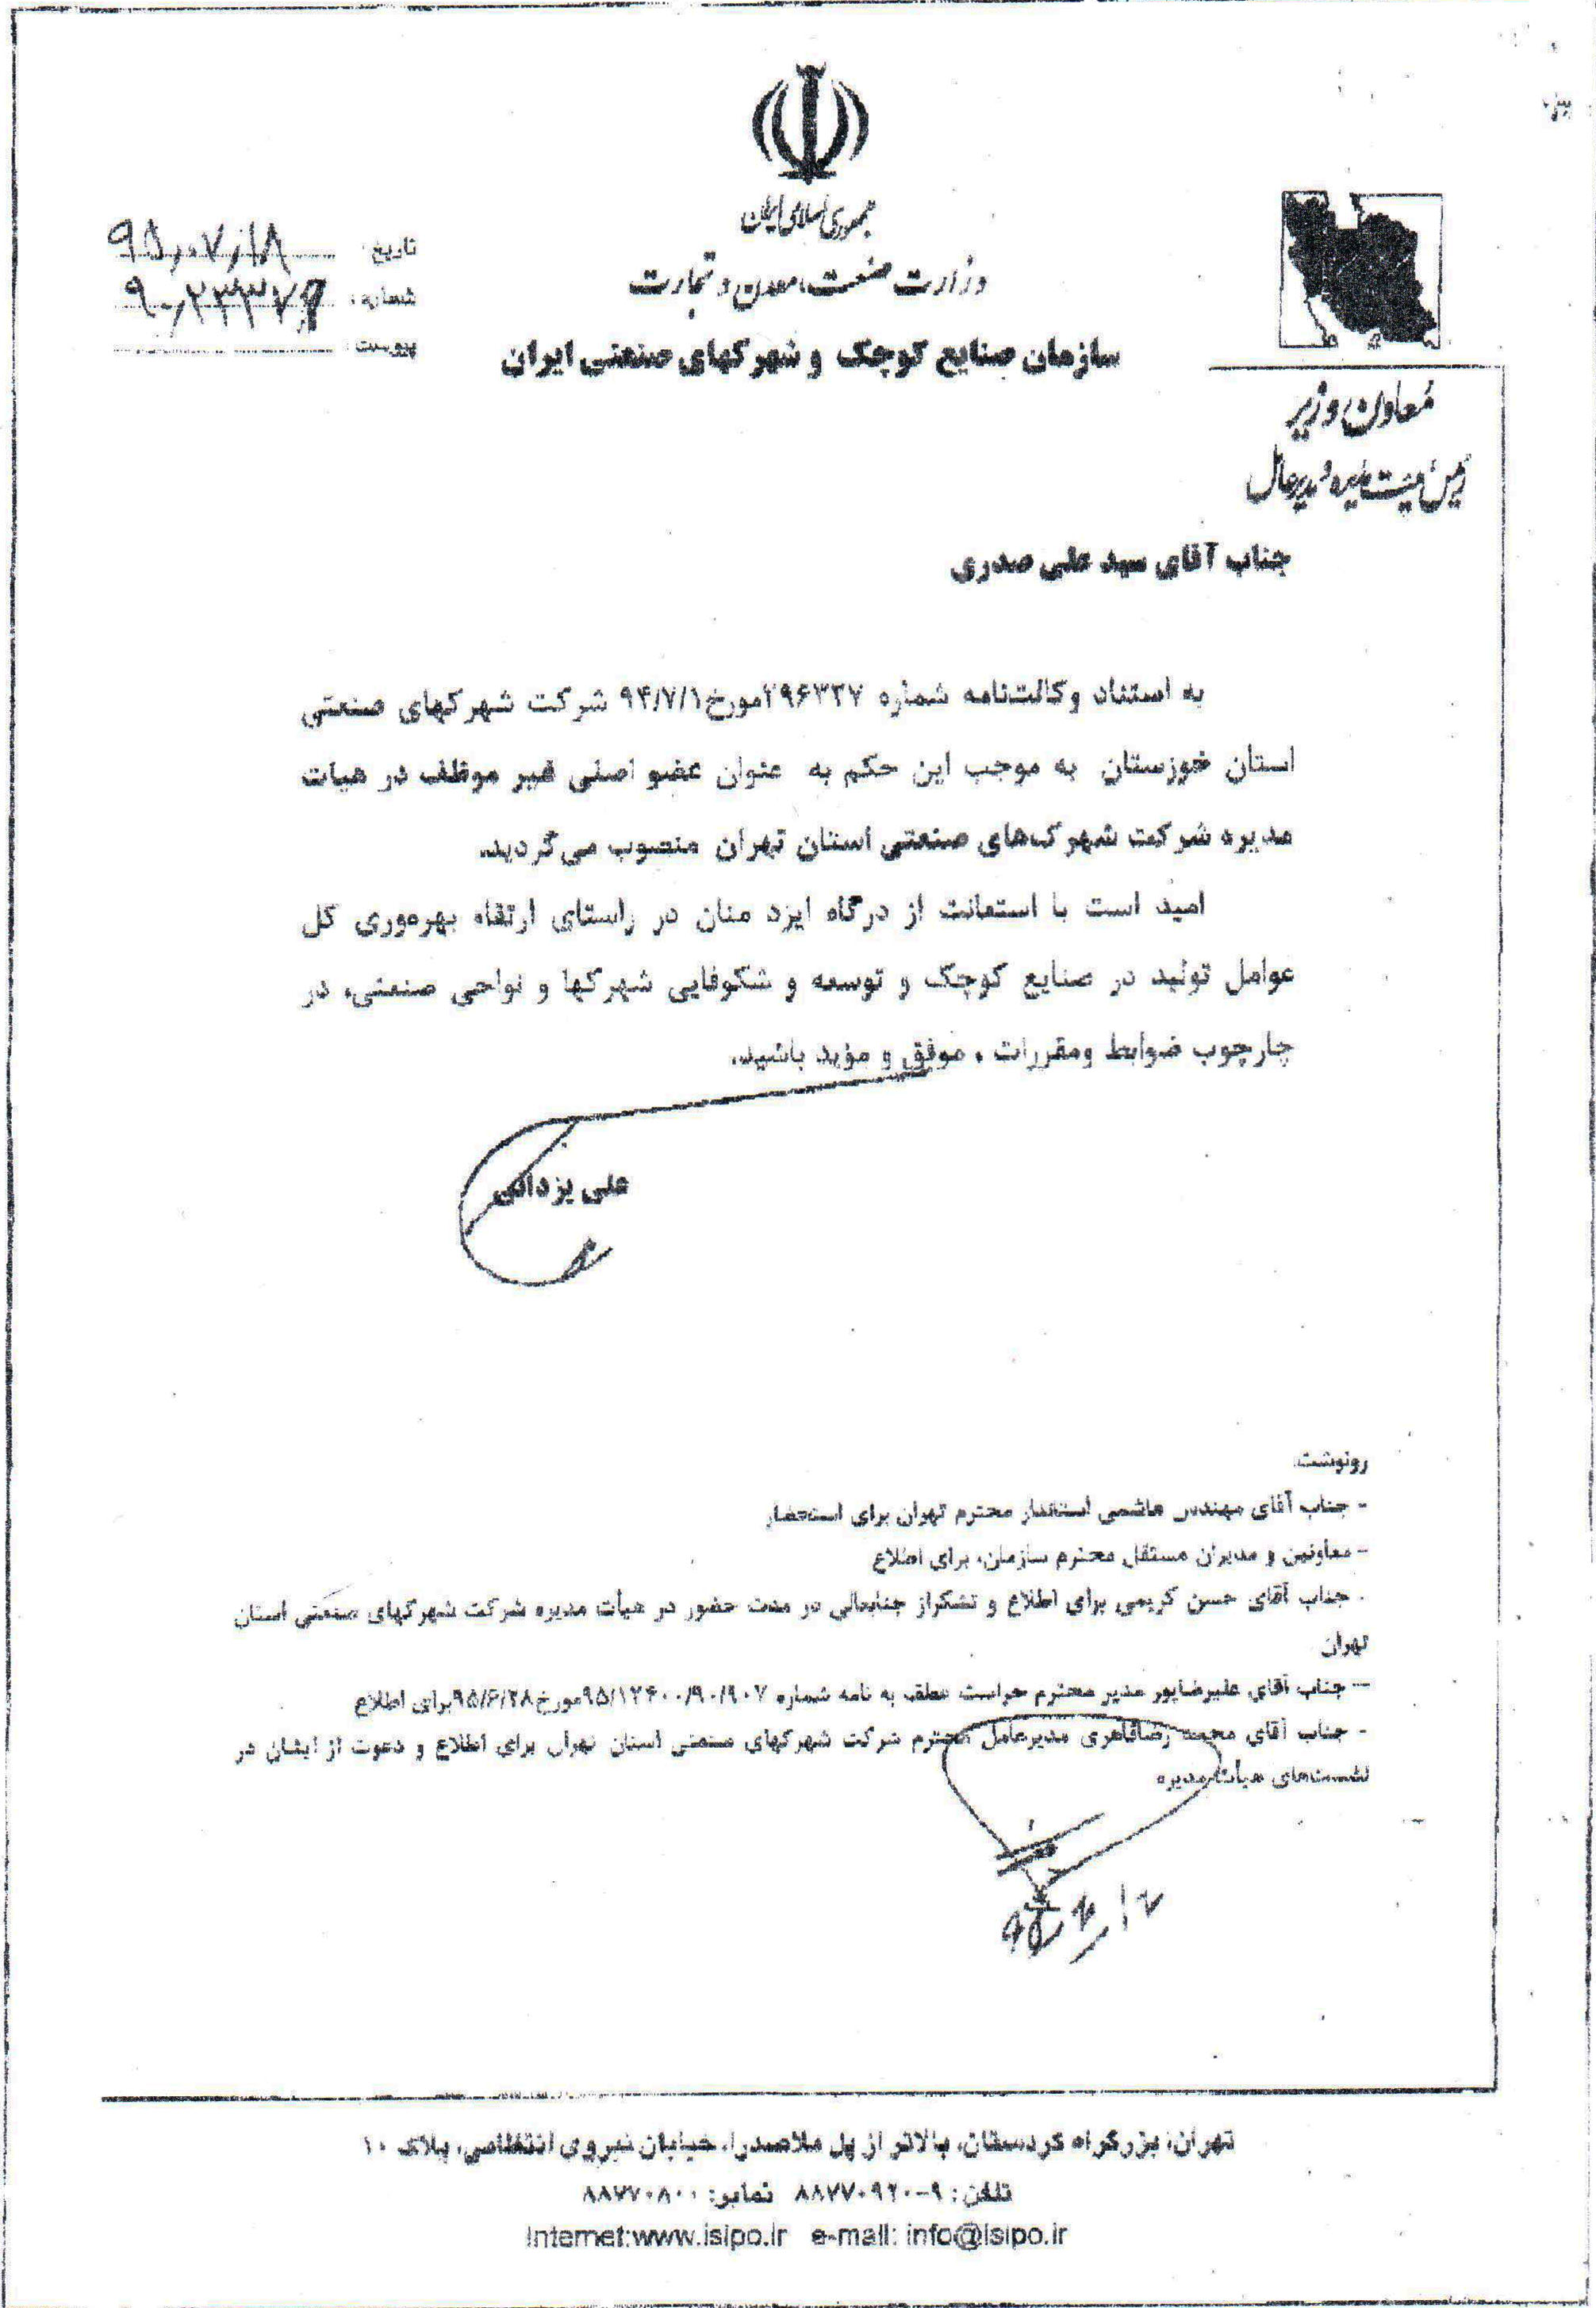 جمهوری اسلامی ایران
وزارت صنعت، معدن و تجارت
سازمان صنایع کوچک و شهرکهای صنعتی ایران
تاریخ: ۹۵٫۰۷٫۱۸
شماره:
پیوست:
معاون وزیر
رئیس هیئت مدیره و مدیرعامل
جناب آقای سید علی صدری
به استناد وکالت‌نامه شماره ۲۹۶۳۲۷مورخ۹۴/۷/۱ شرکت شهرکهای صنعتی
استان خوزستان به موجب این حکم به عنوان عضو اصلی غیر موظف در هیات
مدیره شرکت شهرک‌های صنعتی استان تهران منصوب می‌گردید.
امید است با استعانت از درگاه ایزد منان در راستای ارتقاء بهره‌وری کل
عوامل تولید در صنایع کوچک و توسعه و شکوفایی شهرکها و نواحی صنعتی، در
چارچوب ضوابط ومقررات ، موفق و مؤید باشید.
علی یزدانی
رونوشت
- جناب آقای مهندس هاشمی استاندار محترم تهران برای استحضار
- معاونین و مدیران مستقل محترم سازمان، برای اطلاع
. جناب آقای حسن کریمی برای اطلاع و تشکراز جنابعالی در مدت حضور در هیأت مدیره شرکت شهرکهای صنعتی استان
تهران
- جناب آقای علیرضاپور مدیر محترم حراست عطف به نامه شماره ۹۵/۱۲۶۰۰/۹۰/۹۰۷مورخ۹۵/۶/۲۸برای اطلاع
- جناب آقای محمد رضاقاهری مدیرعامل محترم شرکت شهرکهای صنعتی استان تهران برای اطلاع و دعوت از ایشان در
نشست‌های هیأت مدیره
تهران، بزرگراه کردستان، بالاتر از پل ملاصدرا، خیابان نیروی انتظامی، پلاک ۱۰
تلفن : ۹-۸۸۷۷۰۹۲۰ نمابر: ۸۸۷۷۰۸۰۰
Internet:www.isipo.ir e-mail: info@isipo.ir